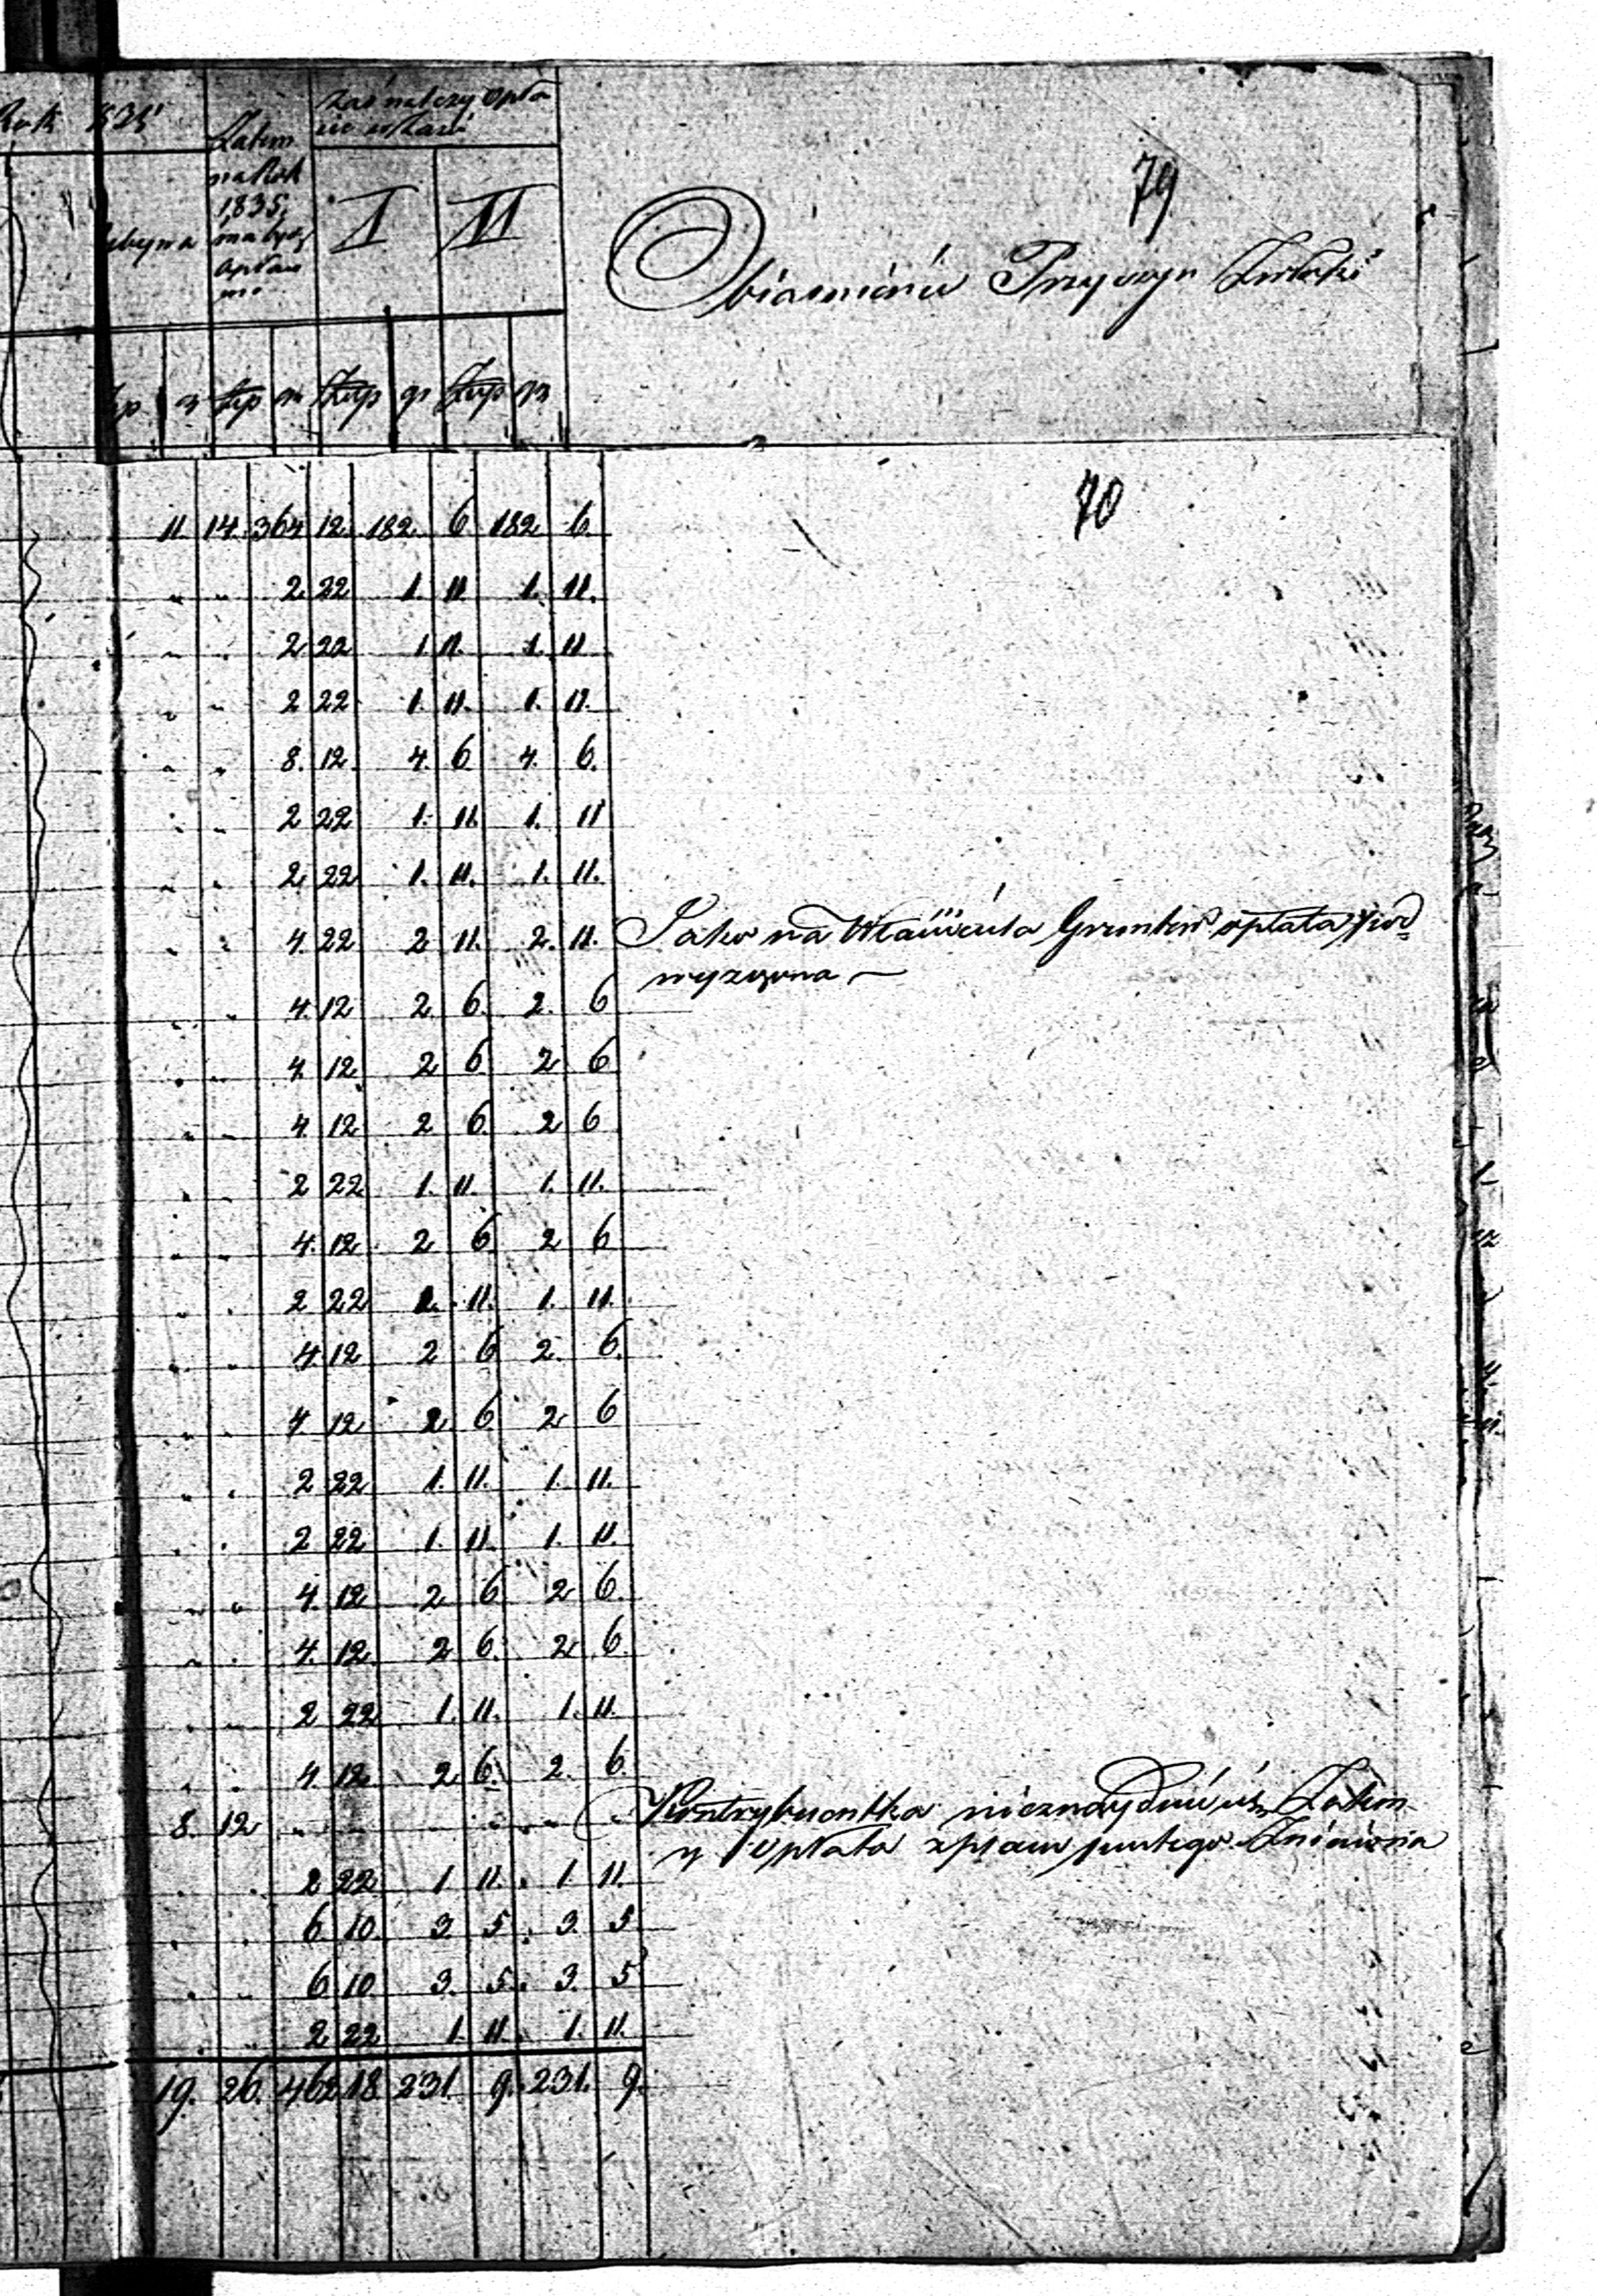 Rok 1835
Zaś należy opła
cić w Racie
Zatem
na Rok
1835,
ma bydź
opłaco
no
ubywa
I II
79
Obiasnienie Przyczyn
Złp gr Złp gr Złp gr Złp gr
70
11. 14. 364 12. 182. 6 182 6.
" " 2 22 1. 11. 1. 11.
" " 2 22 1 11 1. 11
" " 2 22 1. 11. 1. 11.
" " 8. 12. 4. 6 4. 6.
" " 2 22 1. 11. 1. 11
" " 2 22 1. 11. 1. 11.
" " 4. 22 2 11. 2. 11. Jako na Właściciela Gruntu opłata pod
wyższona —
" " 4. 12 2 6. 2. 6
" " 4. 12 2 6 2 6
" " 4. 12 2 6. 2 6
" " 2 22 1. 11. 1. 11.
" " 4. 12. 2 6 2 6
" " 2 22 1. 11. 1. 11.
" " 4. 12 2 6 2. 6.
" " 4 12 2. 6 2 6
" " 2 22 1. 11. 1. 11.
" " 2 22 1. 11. 1. 11.
" " 4. 12 2 6 2 6.
" " 4. 12. 2 6. 2 6.
" " 2 22 1. 11. 1. 11.
" " 4 12 2 6. 2. 6
8. 12 " " " " " " Kontrybuentka nieznayduie się Zatem
y Opłata z planu Zniesiona
" " 2 22 1 11. 1 11.
" " 6. 10. 3 5. 3. 5
" " 6 10 3. 5. 3. 5
" " 2 22 1. 11. 1. 11.
19. 26. 462 18 231. 9. 231. 9.